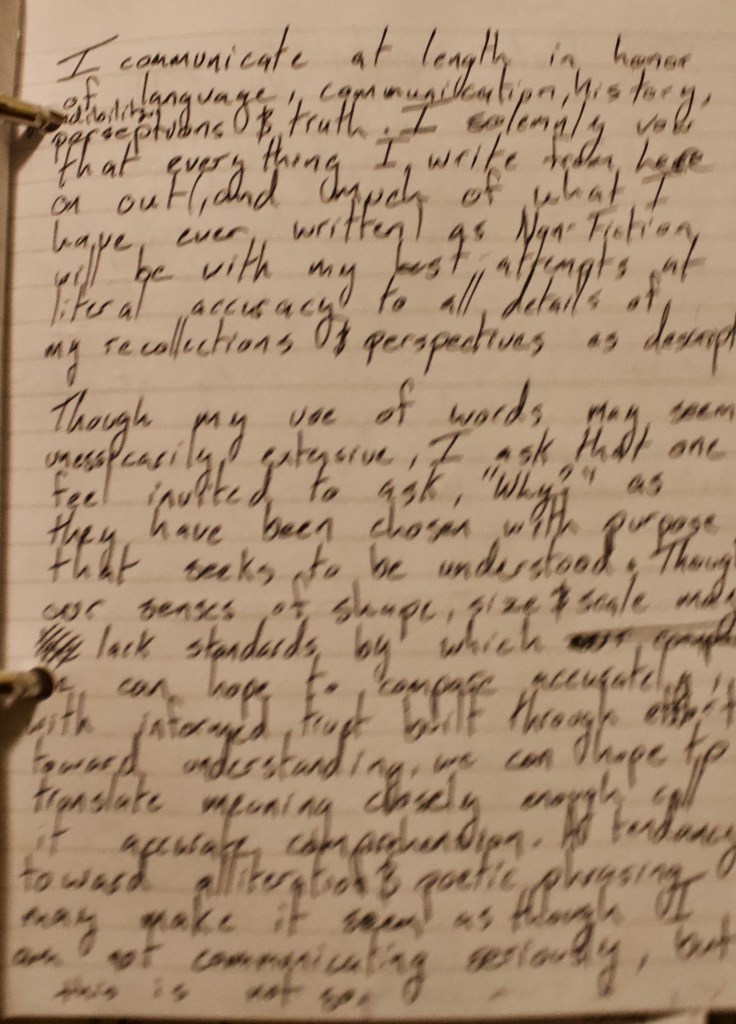 I communicate at length in honor
of language, communication, history,
perseptions & truth. I solemnly vow
that every thing I write from here
on out, and (much of what I
have ever written) as Non-Fiction
will be with my best attempts at
literal accuracy to all details of
my recollections & perspectives as
Though my use of words may seem
extensive, I ask that one
feel invited to ask, "Why?" as
they have been chosen with purpose
that seeks to be understood. Though
our senses of shape, size & scale may
lack standards by which
can hope to compare accurately,
with informed trust built through effort
toward understanding, we can hope to
translate meaning closely enough call
it accurate comprehension. A tendancy
toward alliteration & poetic phrasing
may make it seem as though I
am not communicating seriously, but
this is not so.